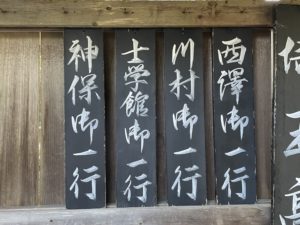 西澤御一行
川村御一行
士学館御一行
神保御一行